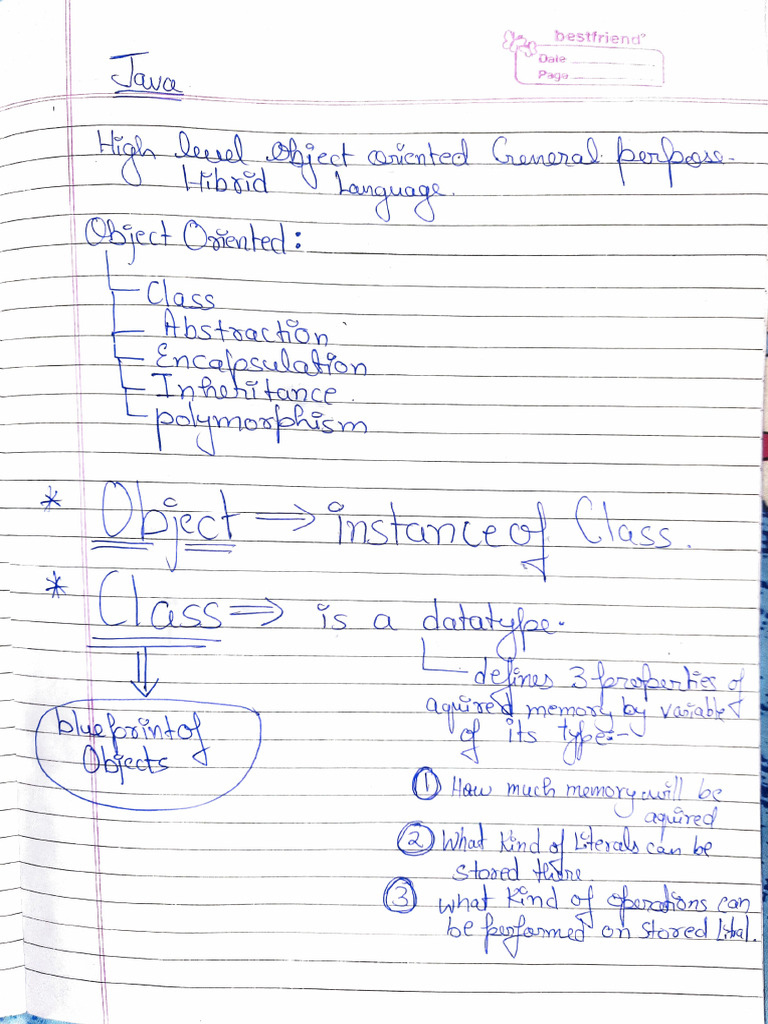 bestfriend®
Date
Page
Java
High level object oriented General perpose
Hibrid Language.
Object Oriented:
Class
Abstraction
Encapsulation
Inheritance.
polymorphism
* Object ⇒ instance of Class.
* Class ⇒ is a datatype.
defines 3 properties of
aquired memory by variable
of its type:-
blueprint of
Objects
① How much memory will be
aquired
② What Kind of Literals can be
stored there.
③ what Kind of operations can
be performed on stored litral.